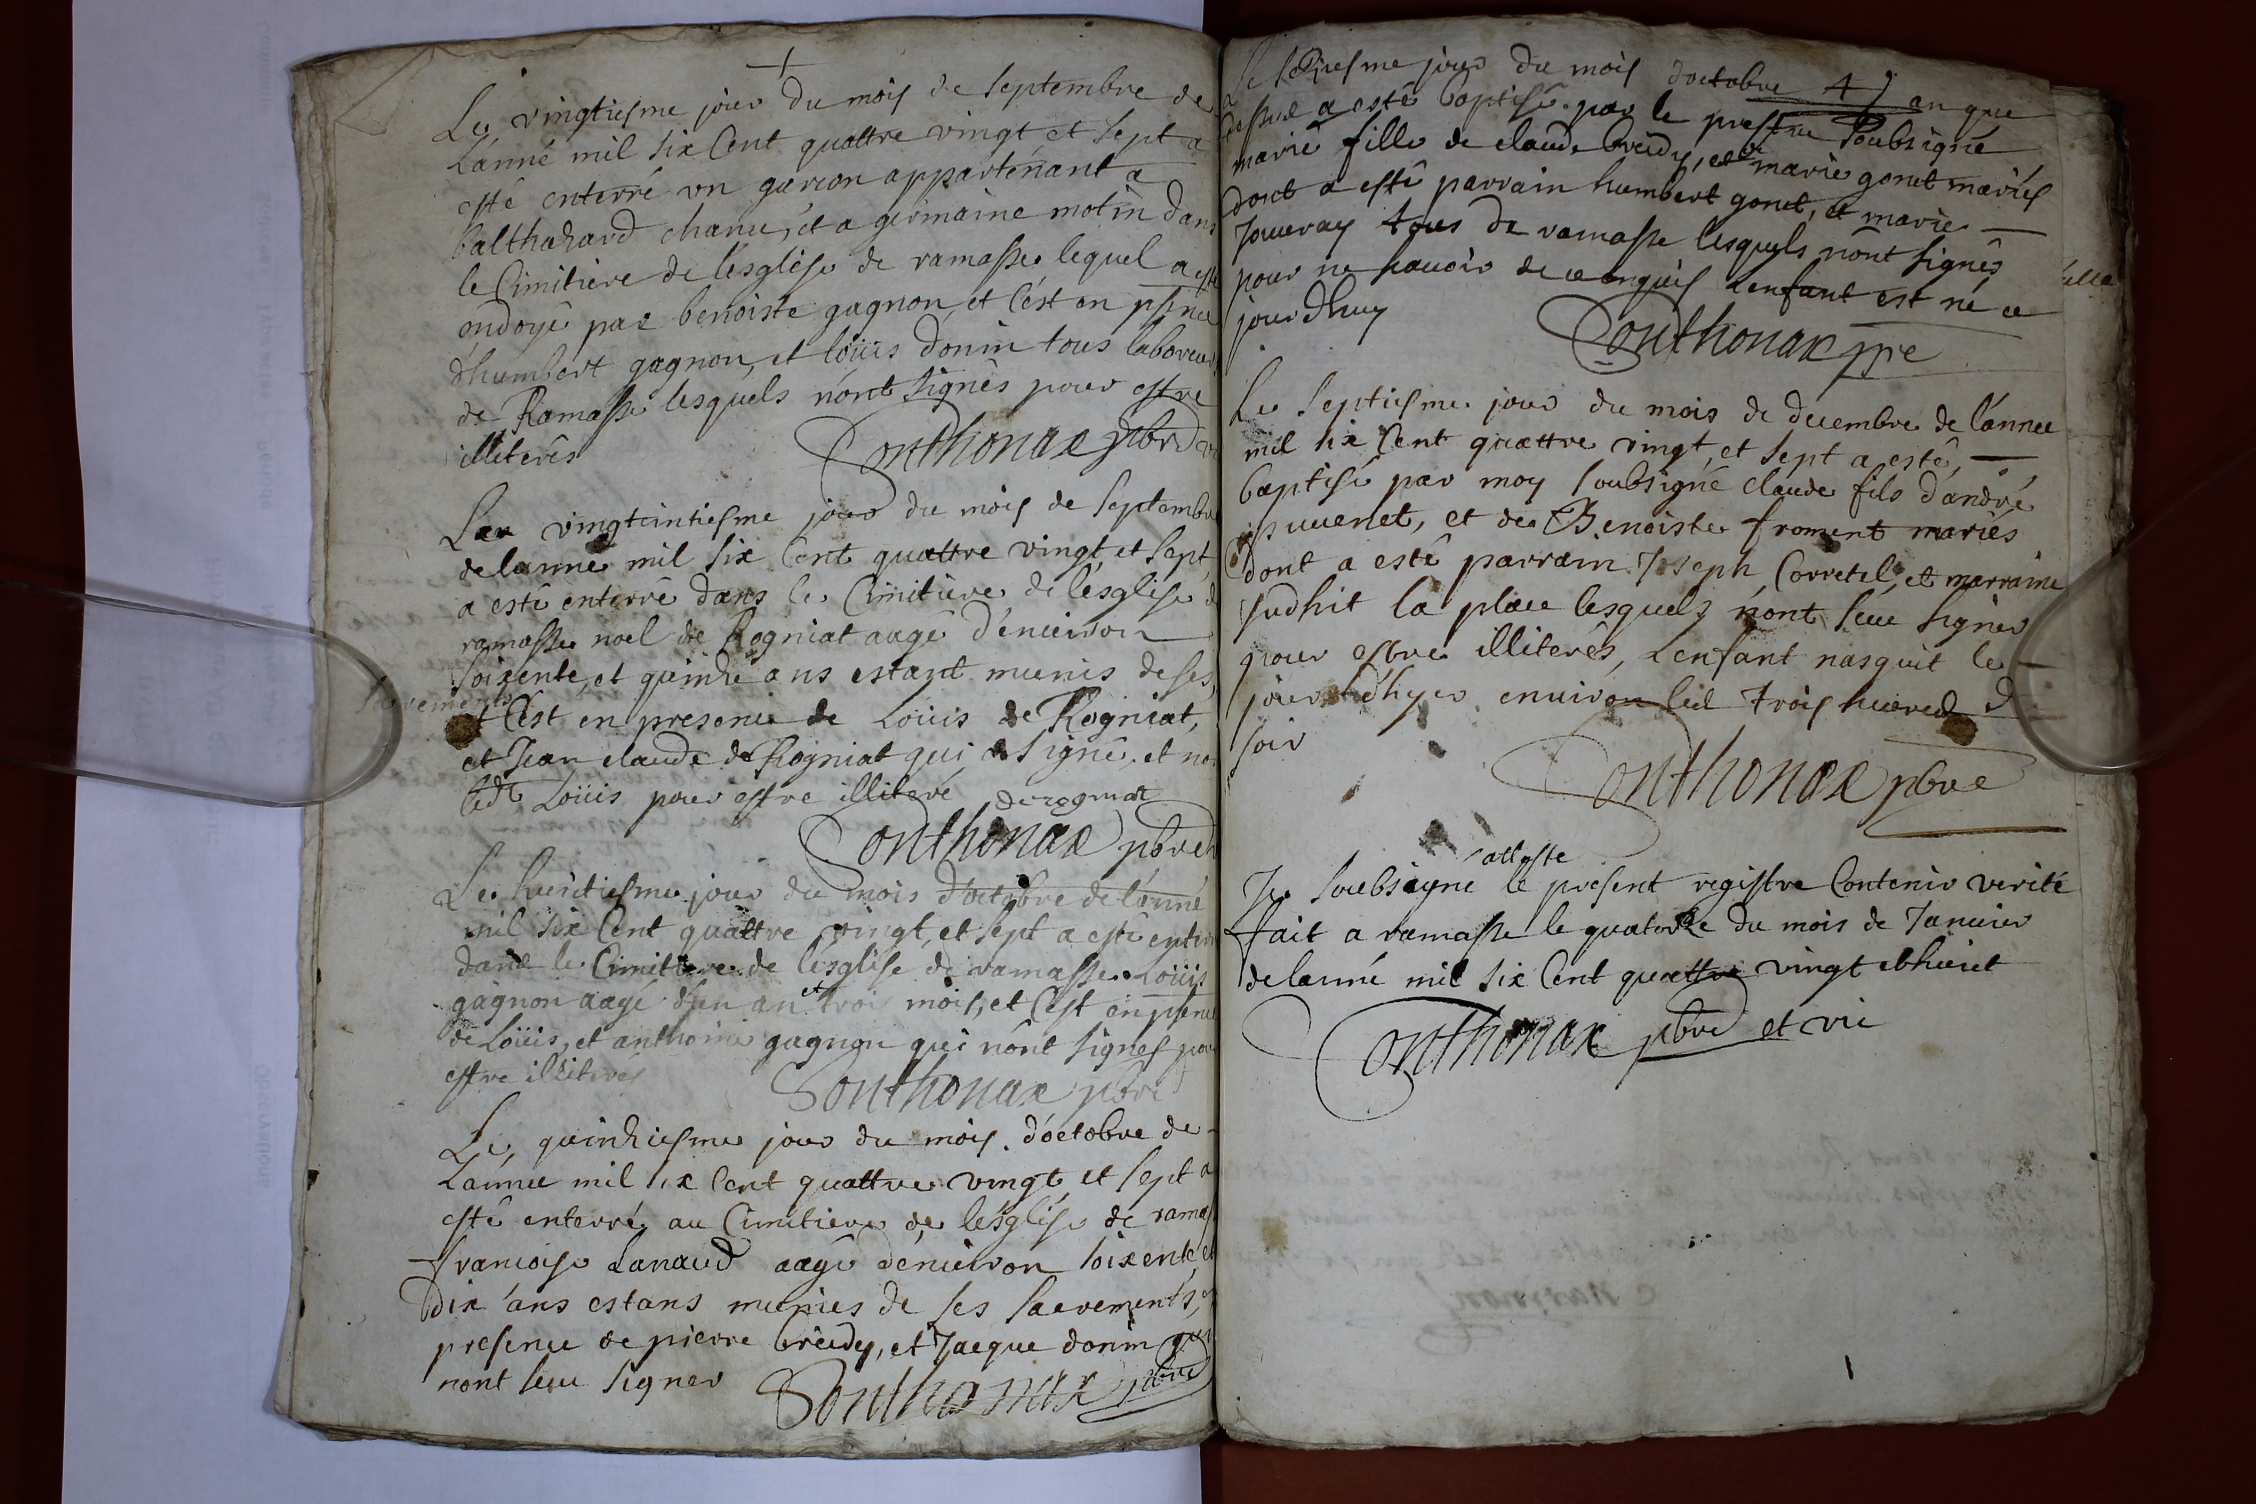 Le vingtiesme jour du mois de septembre de
Lanné mil six Cent quattre vingt et sept a
esté enterré un garcon appartenant a
balthahard chanu, et a germaine motin dans
le Cimitiere de lesglise de ramasse lequel a esté
ondoyé par benoiste gagnon, et Cest en
dhumbert gagnon, et loüis donin tous laboreurs
de Ramasse lesquels nont signés pour estre
illiterés Sonthonax pbre
Le vingtcintiesme jour du mois de septembre
de lanné mil six Cent quattre vingt et sept
a esté enterré dans le Cimitiere de lesglise de
ramasse noel de Rogniat aagé denuiron
soixente, et quinhe ans estant munis de ses
sacrements
et Cest en presence de Loüis de Rogniat,
et Jean claude de Rogniat qui a signé et non
ledt Loüis pour estre illiteré derogniat
Sonthonax pbre
Le huictiesme jour du mois doctobre de lanné
mil six Cent quattre vingt, et sept a esté enterré
dans le Cimitiere de lesglise de ramasse Loüis
gagnon aagé dun an et trois mois, et Cest en
de Loüis, et anthoine gagnon qui nont signés pour
estre illiterés Sonthonax pbre
Le quinhiesme jour du mois doctobre de
Lannee mil six Cent quattre vingt et sept a
esté enterré au Cimitiere de lesglise de
francoise Lanaud aagé denuiron soixente et
dix ans estans munies de ses sacrements,
presence de pierre breidy, et Jacque donin qui
nont seu signer Sonthonax pbre
Le jour du mois doctobre an que
dessus a esté baptisé par le prestre soubsigné
marie fille de claude breidy, et de marie gonet mariés
dont a esté parrain humbert gonet, et marie
Jouuray tous de ramasse lesquels nont signés
pour ne scauoir de ce enquis Lenfant est né ce
jourdhuy Sonthonax pre
Le septiesme jour du mois de decembre de lannee
mil six Cent quattre vingt, et sept a esté,
baptisé par moy soubsigné claude fils dandré
juuenet, et de Benoiste froment mariés
dont a esté parrain Joseph Corretel, et marraine
Judhit la place lesquels nont seu signer
pour estre illiterés, Lenfant nasquit le
jour dhyer enuiron les trois heures d
soir
Sonthonax pbre
Je soubsigne atteste le present registre Contenir verité
fait a ramasse le quatorze du mois de Januier
de lanné mil six Cent quattre vingt et huict
Sonthonax pbre et vic